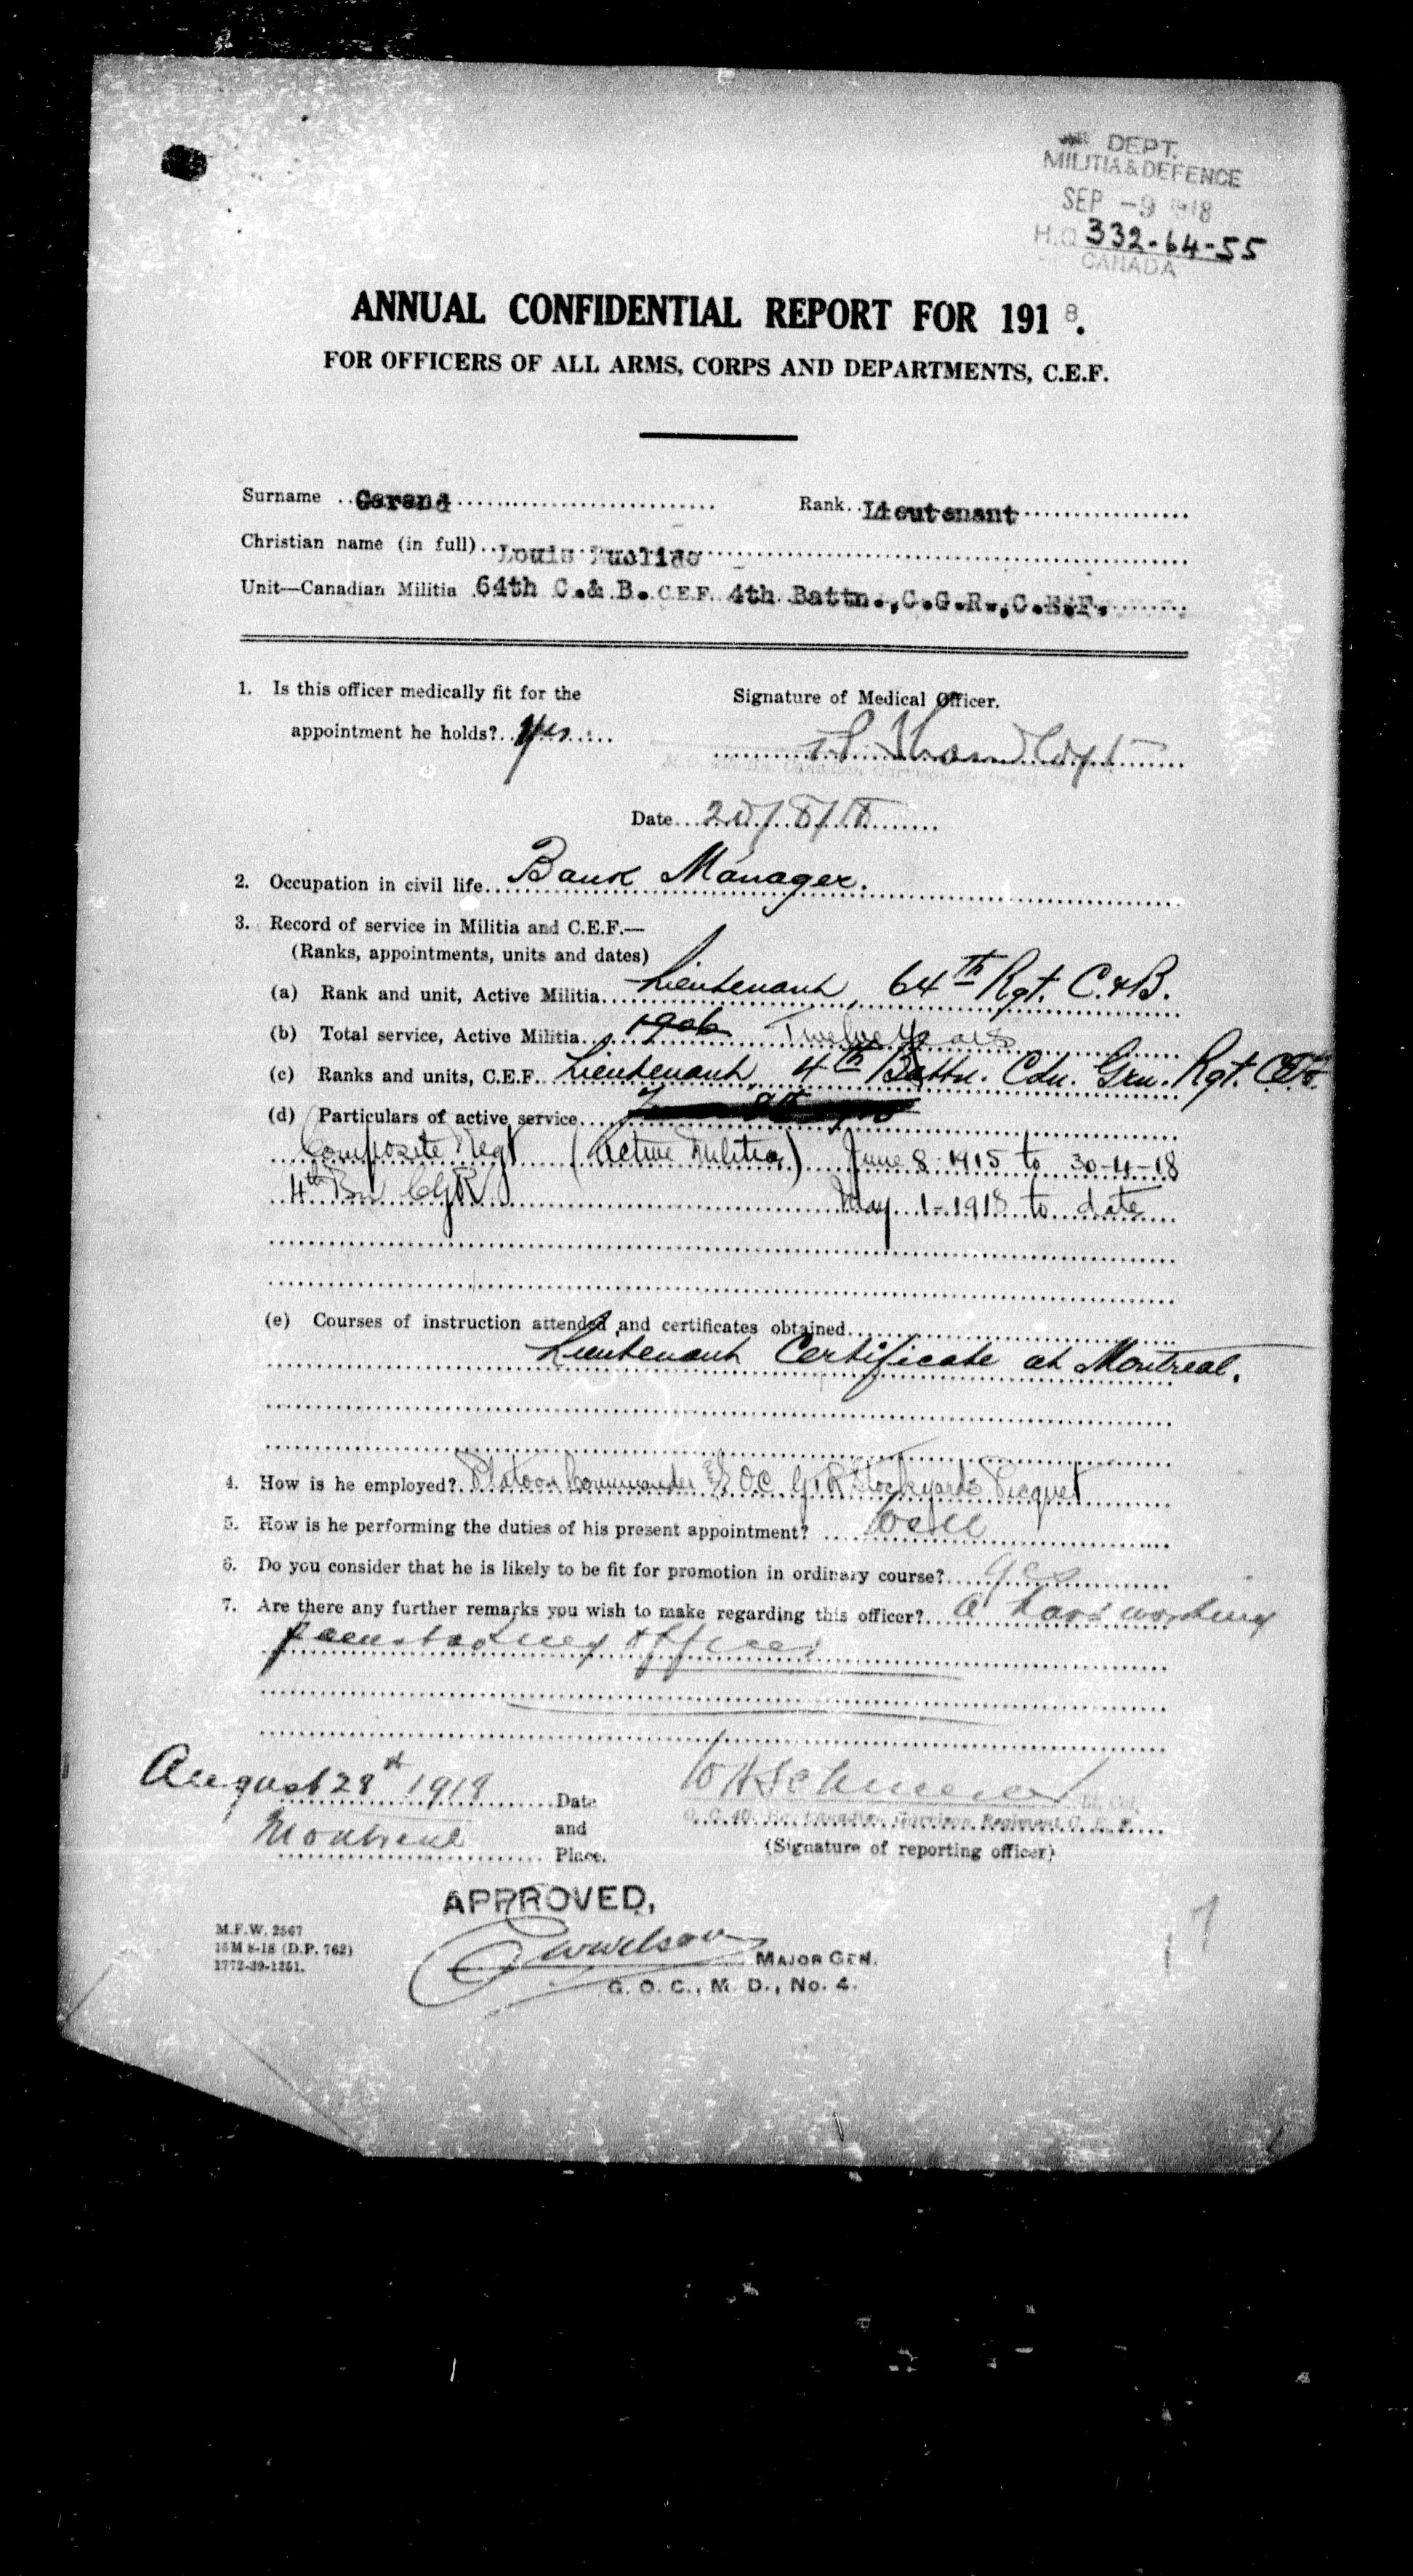 DEPT.
MILITIA & DEFENCE
SEP -9 1918
H.Q. 332-64-55
CANADA
ANNUAL CONFIDENTIAL REPORT FOR 1918.
FOR OFFICERS OF ALL ARMS, CORPS AND DEPARTMENTS, C.E.F.
Surname Garand Rank Lieutenant
Christian name (in full) Louis
Unit—Canadian Militia 64th C.& B. C.E.F. 4th Battn.,C.G.R.,C.E.F.
1. Is this officer medically fit for the Signature of Medical Officer.
appointment he holds? Yes Capt
Date 20/8/18
2. Occupation in civil life Bank Manager.
3. Record of service in Militia and C.E.F.—
(Ranks, appointments, units and dates)
(a) Rank and unit, Active Militia Lieutenant, 64th Rgt. C.&B.
(b) Total service, Active Militia 1906 Twelve Years
(c) Ranks and units, C.E.F. Lieutenant, 4th Battn. Cdn. Grn. Rgt. C.E.F.
(d) Particulars of active service
Composite Regt (Active Militia) June 8 1915 to 30-4-18
4th Bn CGR May 1-1918 to date
(e) Courses of instruction attended and certificates obtained
Lieutenant Certificate at Montreal.
4. How is he employed? Platoon Commander O.C. G.T.R. Stockyards Picquet
5. How is he performing the duties of his present appointment? Well
6. Do you consider that he is likely to be fit for promotion in ordinary course? Yes
7. Are there any further remarks you wish to make regarding this officer? A hard working
painstaking officer
August 28th 1918 Date
Lt. Col.
and O. C. 4th Bn. Canadian Garrison Regiment, C. E. F.
Montreal Place. (Signature of reporting officer)
APPROVED,
EWWilson MAJOR GEN.
G. O. C., M. D., No. 4.
M.F.W. 2567
15M 8-18 (D.P. 762)
1772-39-1351.